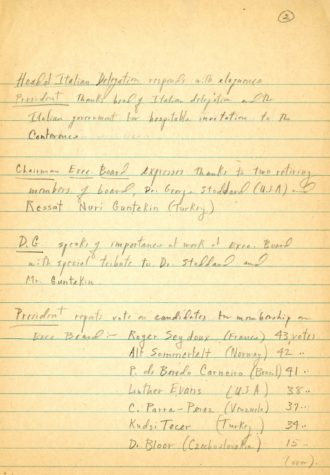 2
Head of Italian Delegation responds with eloquence
President thanks head of Italian delegation and the
Italian government for hospitable invitation to the
Conference
Chairman Exec. Board expresses thanks to two retiring
members of board, Dr. George Stoddard (U.S.A) and
Ressat Nuri Guntekin (Turkey)
D.G. speaks of importance of work of Exec. Board
with special tribute to Dr. Stoddard and
Mr. Guntekin
President reports vote on candidates for membership on
Exec Board:- Roger Seydoux (France) 43 votes
Alf Sommerfelt (Norway) 42 "
P. de Beredo Carneiro (Brazil) 41 "
Luther Evans (U.S.A) 38 "
C. Parra-Perez (Venezuela) 37 "
Kudsi Tecer (Turkey) 34 "
Dr Bloor (Czechoslovakia) 15 "
(over).